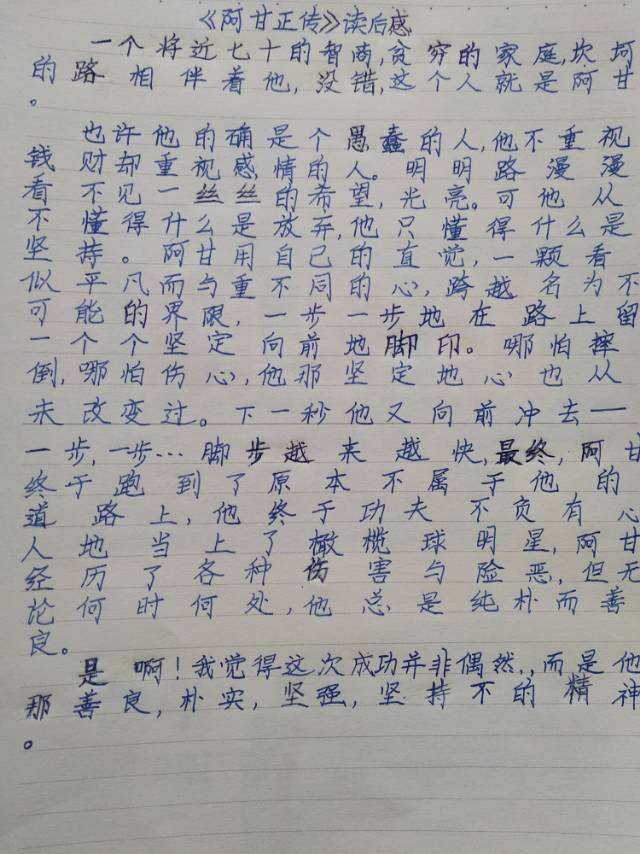 《阿甘正传》读后感
一个将近七十的智商,贫穷的家庭,坎坷
的路相伴着他,没错,这个人就是阿甘
。
也许他的确是个愚蠢的人,他不重视
钱财却重视感情的人。明明路漫漫
看不见一丝丝的希望,光亮。可他从
不懂得什么是放弃,他只懂得什么是
坚持。阿甘用自己的直觉,一颗看
似平凡而与重不同的心,跨越名为不
可能的界限,一步一步地在路上留
一个个坚定向前地脚印。哪怕摔
倒,哪怕伤心,他那坚定地心也从
未改变过。下一秒他又向前冲去——
一步,一步…脚步越来越快,最终,阿甘
终于跑到了原本不属于他的
道路上,他终于功夫不负有心
人地当上了橄榄球明星,阿甘
经历了各种伤害与险恶,但无
论何时何处,他总是纯朴而善
良。
是啊!我觉得这次成功并非偶然,,而是他
那善良,朴实,坚强,坚持不的精神
。